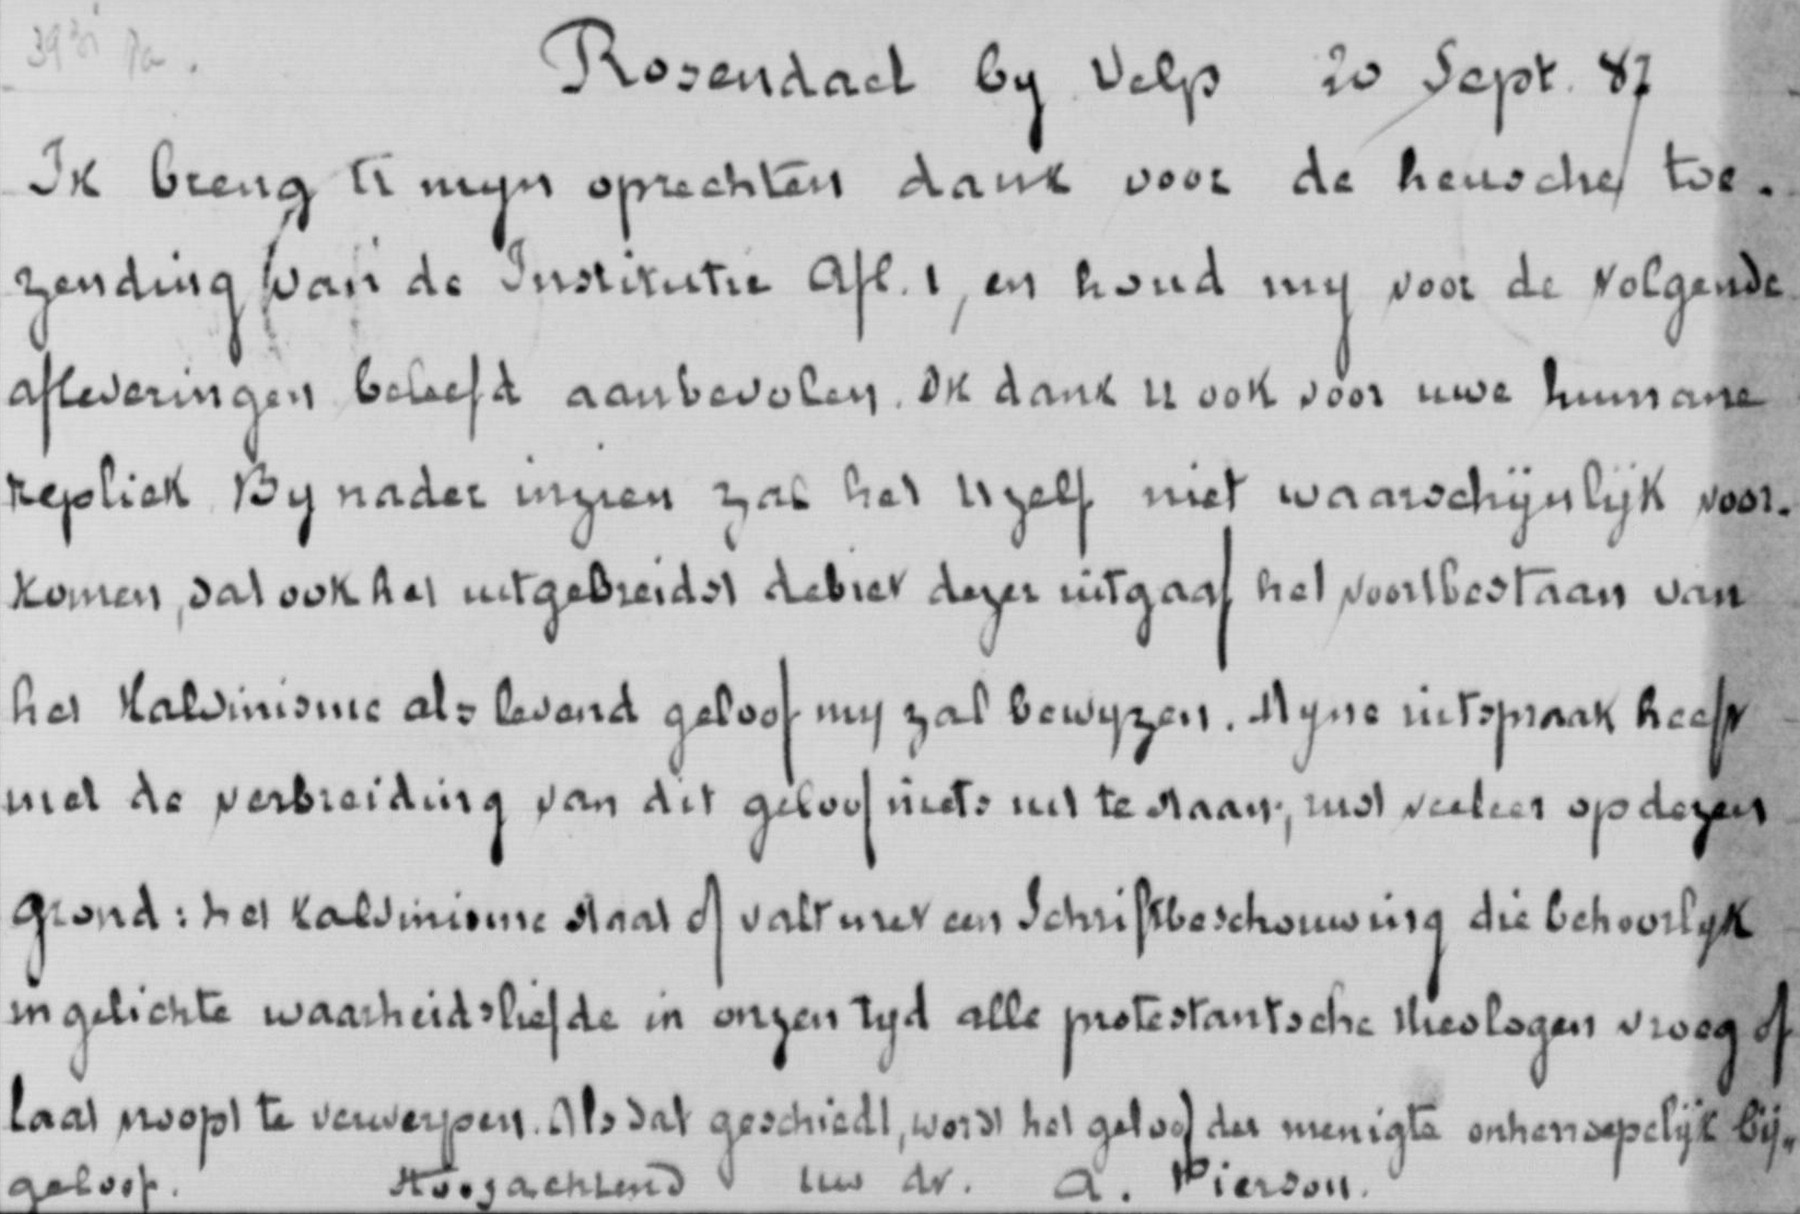 Rosendael by Velp 20 Sept. 87
Ik breng U myn oprechten dank voor de heusche toe-
zending van de Institutie Afl. 1, en houd my voor de volgende
afleveringen beleefd aanbevolen. Ik dank U ook voor uwe humane
repliek. By nader inzien zal het U zelf niet waarschijnlijk voor-
komen, dat ook het uitgebreidst debiet dezer uitgaaf het voortbestaan van
het Kalvinisme als levend geloof my zal bewyzen. Myne uitspraak heeft
met de verbreiding van dit geloof niets uit te staan; rust veeleer op dezen
grond: het Kalvinisme staat of valt met een Schriftbeschouwing die behoorlyk
ingelichte waarheidsliefde in onzen tyd alle protestantsche theologen vroeg of
laat noopt te verwerpen. Als dat geschiedt, wordt het geloof der menigte onherroepelijk bij-
geloof. Hoogachtend Uw dr. A. Pierson.